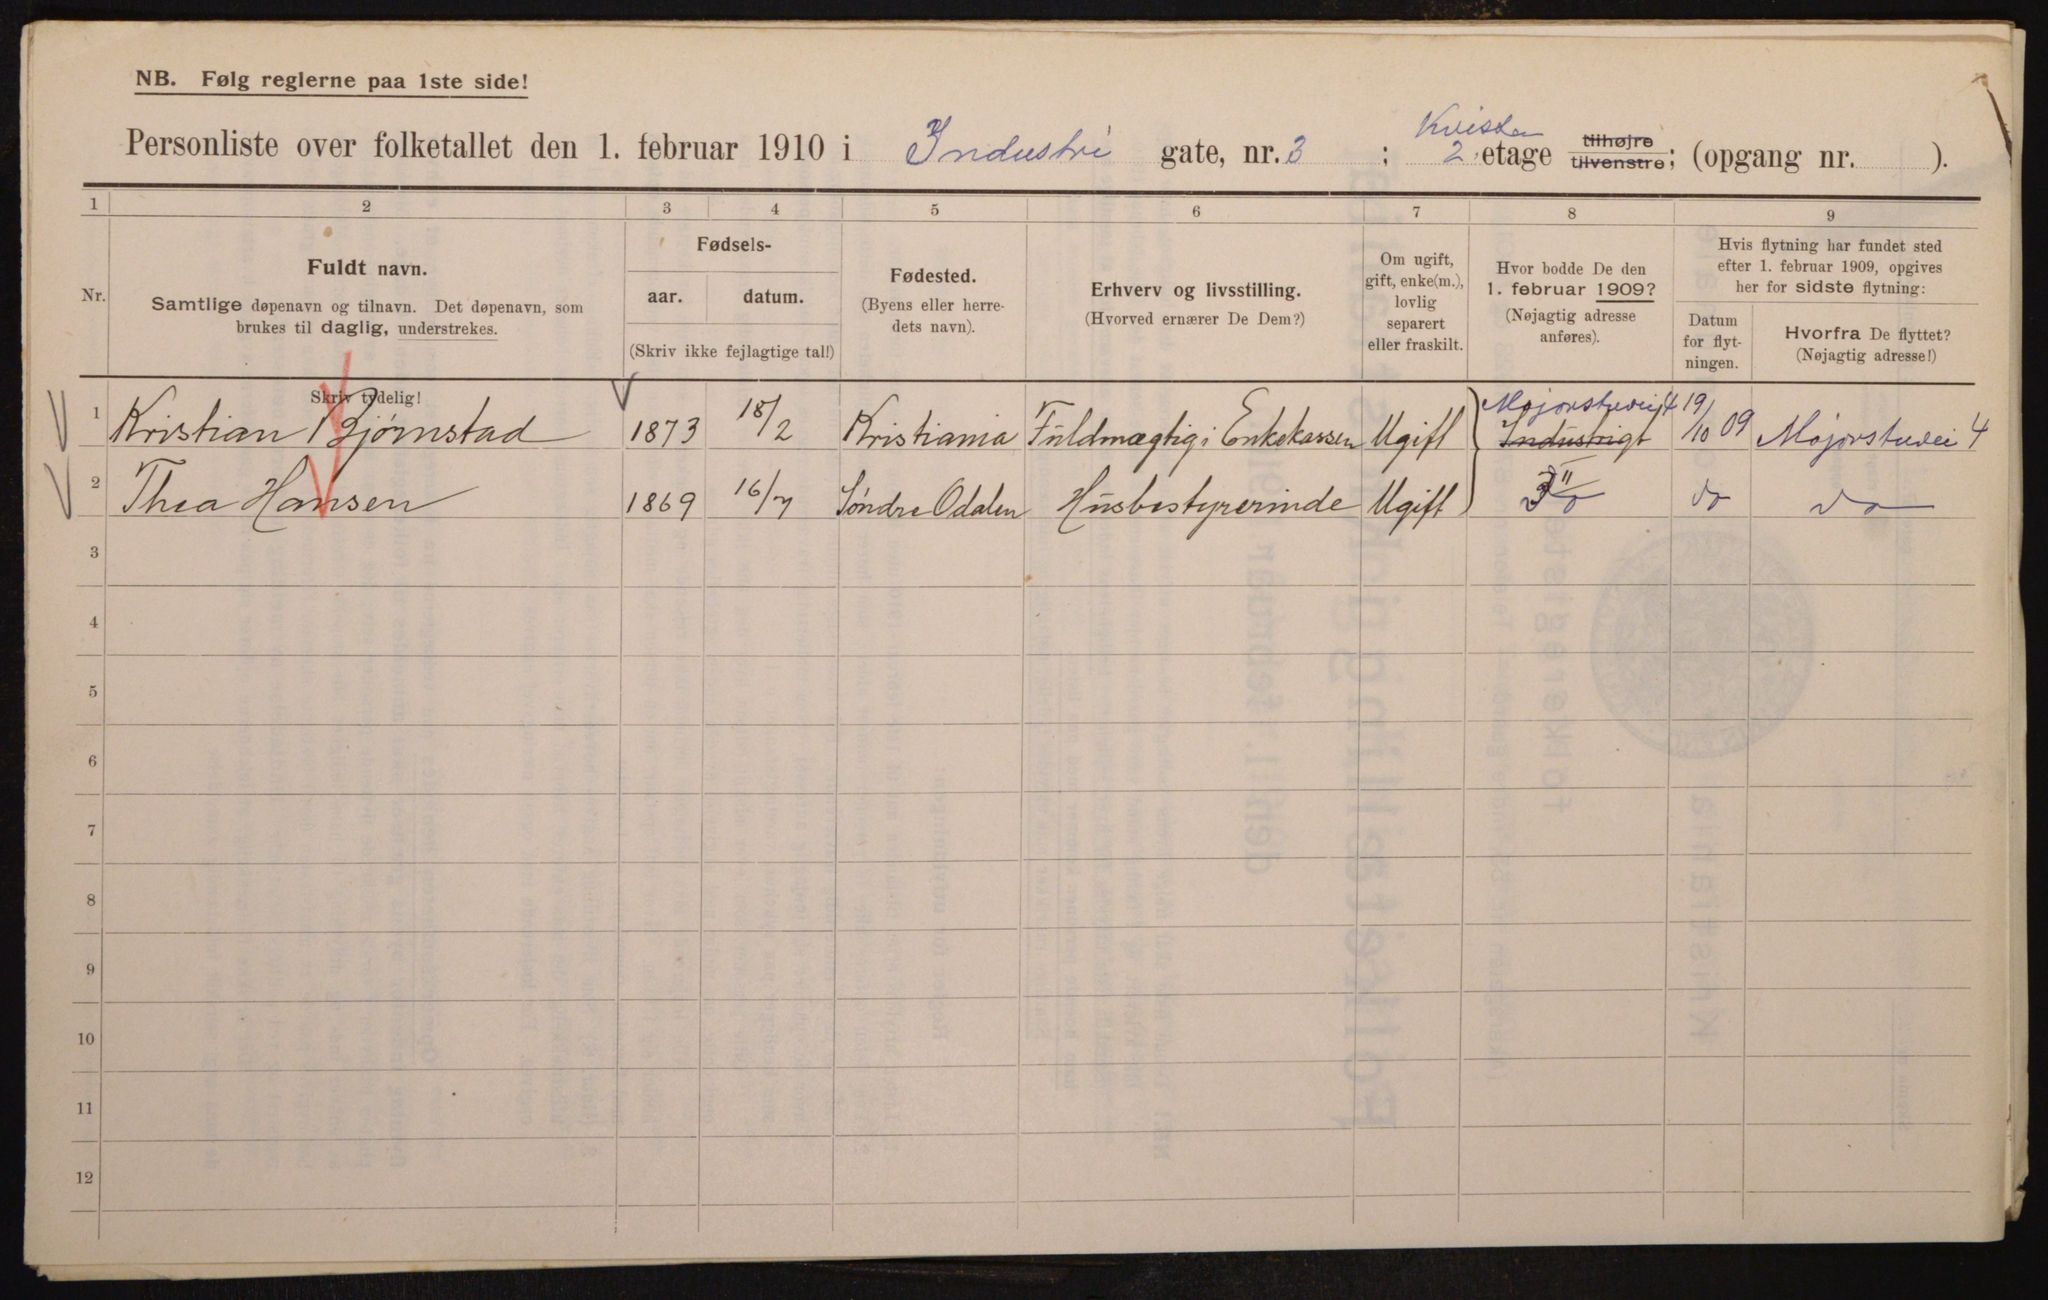 NB. Følg reglerne paa 1ste side!
Kvisten
Personliste over folketallet den 1. februar 1910 i Industri gate, nr. 3 ; 2. etage tilhøjre tilvenstre; (opgang nr. ).
1 2 3 4 5 6 7 8 9
Nr.
Fuldt navn.
Samtlige døpenavn og tilnavn. Det døpenavn, som
brukes til daglig, understrekes.
Skriv tydelig!
Fødsels-
aar. datum.
(Skriv ikke fejlagtige tal!)
Fødested.
(Byens eller herre-
dets navn).
Erhverv og livsstilling.
(Hvorved ernærer De Dem?)
Om ugift,
gift, enke(m.),
lovlig
separert
eller fraskilt.
Hvor bodde De den
1. februar 1909?
(Nøjagtig adresse
anføres).
Hvis flytning har fundet sted
efter 1. februar 1909, opgives
her for sidste flytning:
Datum
for flyt-
ningen.
Hvorfra De flyttet?
(Nøjagtig adresse!)
Majorstuvei 4
1 Kristian Bjørnstad 1873 18/2 Kristiania Fuldmægtig i Enkekassen Ugift Industrigt 19/10 09 Majorstuvei 4
2 Thea Hansen 1869 16/7 Søndre Odalen Husbestyrerinde Ugift 3 II do do
3
4
5
6
7
8
9
10
11
12